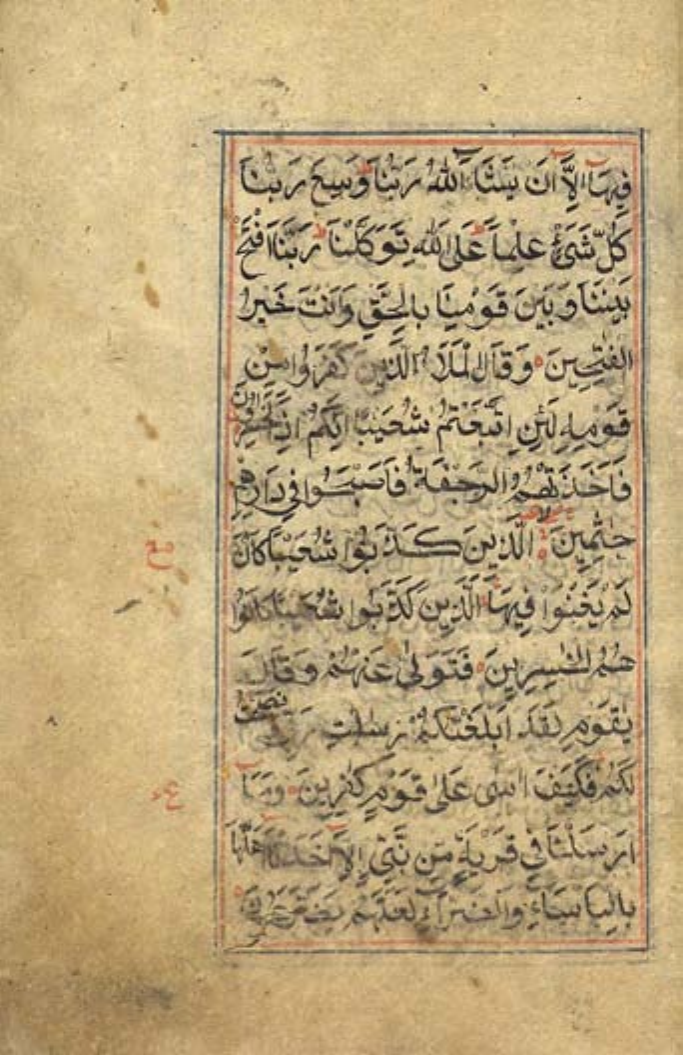 فِيهَآ اِلَّآ اَنْ يَشَآءَ اللّٰهُ رَبُّنَا وَسِعَ رَبُّنَا
كُلَّ شَىْءٍ عِلْمًا عَلَى اللّٰهِ تَوَكَّلْنَا رَبَّنَا افْتَحْ
بَيْنَنَا وَبَيْنَ قَوْمِنَا بِالْحَقِّ وَاَنْتَ خَيْرُ
الْفٰتِحِينَ وَقَالَ الْمَلَاُ الَّذِينَ كَفَرُوا مِنْ
قَوْمِهِ لَئِنِ اتَّبَعْتُمْ شُعَيْبًا اِنَّكُمْ اِذًا لَخٰسِرُونَ
فَاَخَذَتْهُمُ الرَّجْفَةُ فَاَصْبَحُوا فِى دَارِهِمْ
جٰثِمِينَ الَّذِينَ كَذَّبُوا شُعَيْبًا كَاَنْ
لَمْ يَغْنَوْا فِيهَا الَّذِينَ كَذَّبُوا شُعَيْبًا كَانُوا
هُمُ الْخٰسِرِينَ فَتَوَلّٰى عَنْهُمْ وَقَالَ
يٰقَوْمِ لَقَدْ اَبْلَغْتُكُمْ رِسٰلٰتِ رَبِّى وَنَصَحْتُ
لَكُمْ فَكَيْفَ اٰسٰى عَلٰى قَوْمٍ كٰفِرِينَ وَمَآ
اَرْسَلْنَا فِى قَرْيَةٍ مِنْ نَبِىٍّ اِلَّآ اَخَذْنَآ اَهْلَهَا
بِالْبَاْسَآءِ وَالضَّرَّآءِ لَعَلَّهُمْ يَضَّرَّعُونَ